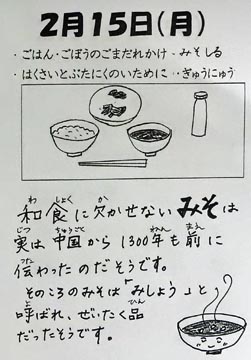 2月15日(月)
・ごはん・ごぼうのごまだれかけ・みそしる
・はくさいとぶたにくのいために・ぎゅうにゅう
和食に欠かせないみそは
実は中国から1300年も前に
伝わったのだそうです。
そのころのみそは「みしょう」と
呼ばれ、ぜいたく品
だったそうです。